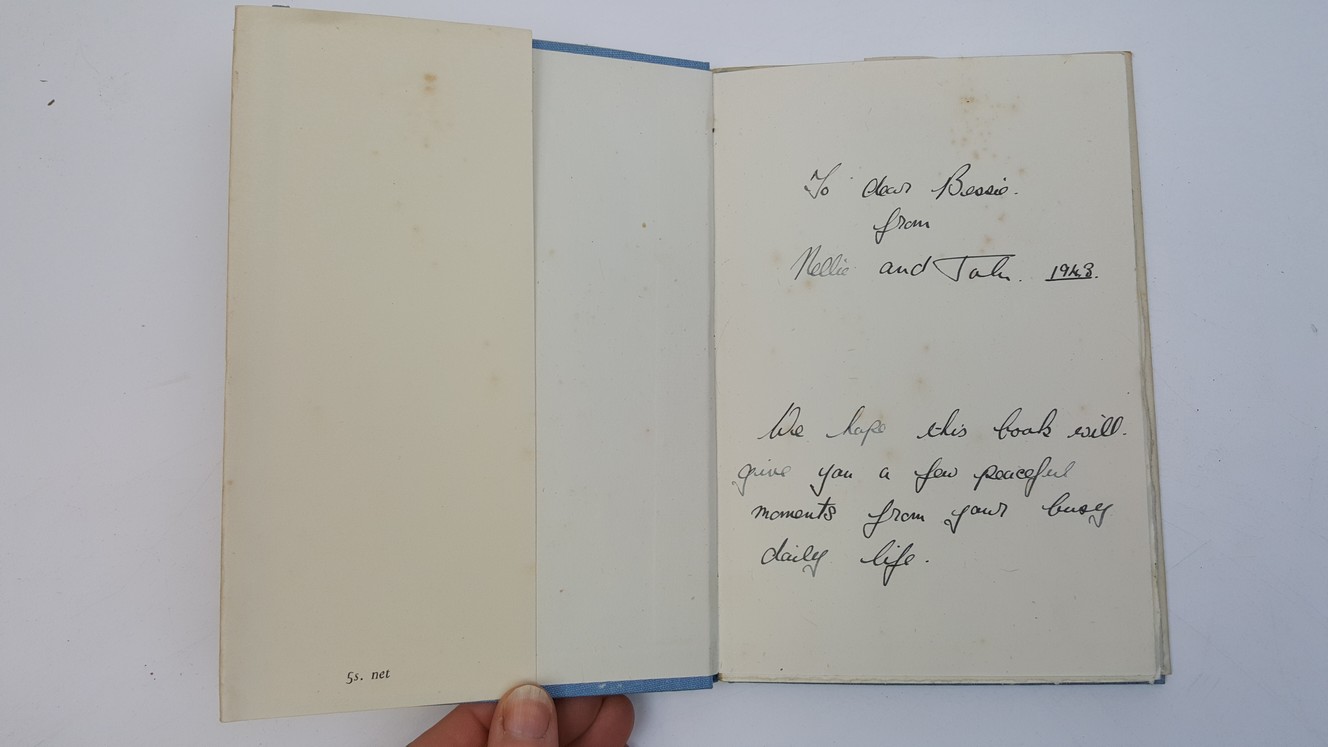 To dear Bessie.
from
Nellie and 1943.
We hope this book will.
give you a few peaceful
moments from your busy
daily life.
5s. net